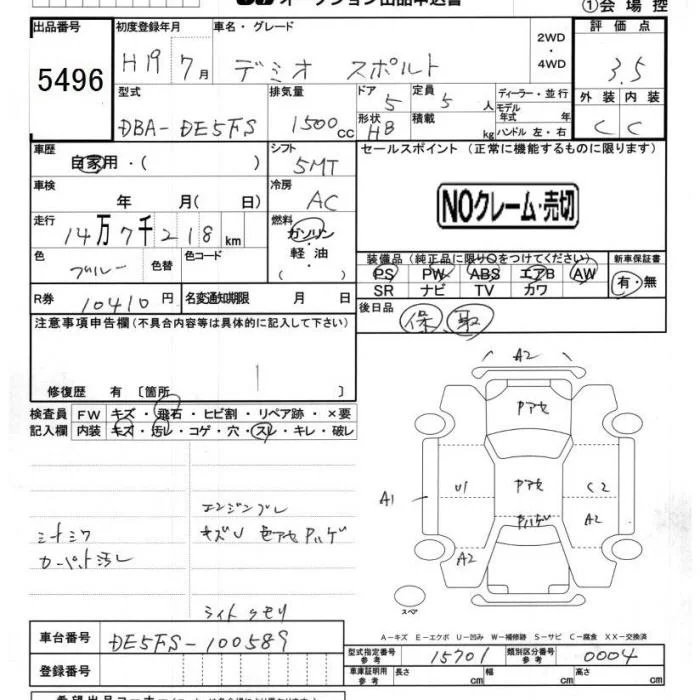 オークション出品申込書
①会場控
出品番号 初度登録年月 車名・グレード 評価点
5496 H19 7月 デミオ スポルト 2WD・4WD 3.5
型式 排気量 ドア 5 定員 5人 ディーラー・並行 外装 内装
DBA-DE5FS 1500cc 形状 HB 積載 kg モデル年式 年 C C
ハンドル 左・右
車歴 自家用・( ) シフト 5MT セールスポイント(正常に機能するものに限ります)
車検 年 月( 日) 冷房 AC
NOクレーム・売切
走行 14万7千218km 燃料 ガソリン・軽油・( )
色 ブルー 色替 色コード
装備品(純正品に限り○をつけてください) 新車保証書
PS PW ABS エアB AW 有・無
SR ナビ TV カワ
R券 10410円 名変通知期限 月 日
後日品 保 取
注意事項申告欄(不具合内容等は具体的に記入して下さい)
修復歴 有〔箇所 〕
検査員 FW キズ・飛石・ヒビ割・リペア跡・×要
記入欄 内装 キズ・汚レ・コゲ・穴・スレ・キレ・破レ
A2
Pアセ
A1 U1 Pアセ C2
Pハゲ A2
A2
エンジンブレ
ミナミク キズU 色アセ Pハゲ
カーペット汚レ
スペア
ライトクモリ
A-キズ E-エクボ U-凹み W-補修跡 S-サビ C-腐食 XX-交換済
車台番号 DE5FS-100589
型式指定番号 参考 15701 類別区分番号 参考 0004
登録番号
車庫証明用 参考 長さ cm 幅 cm 高さ cm
希望出品コーナー